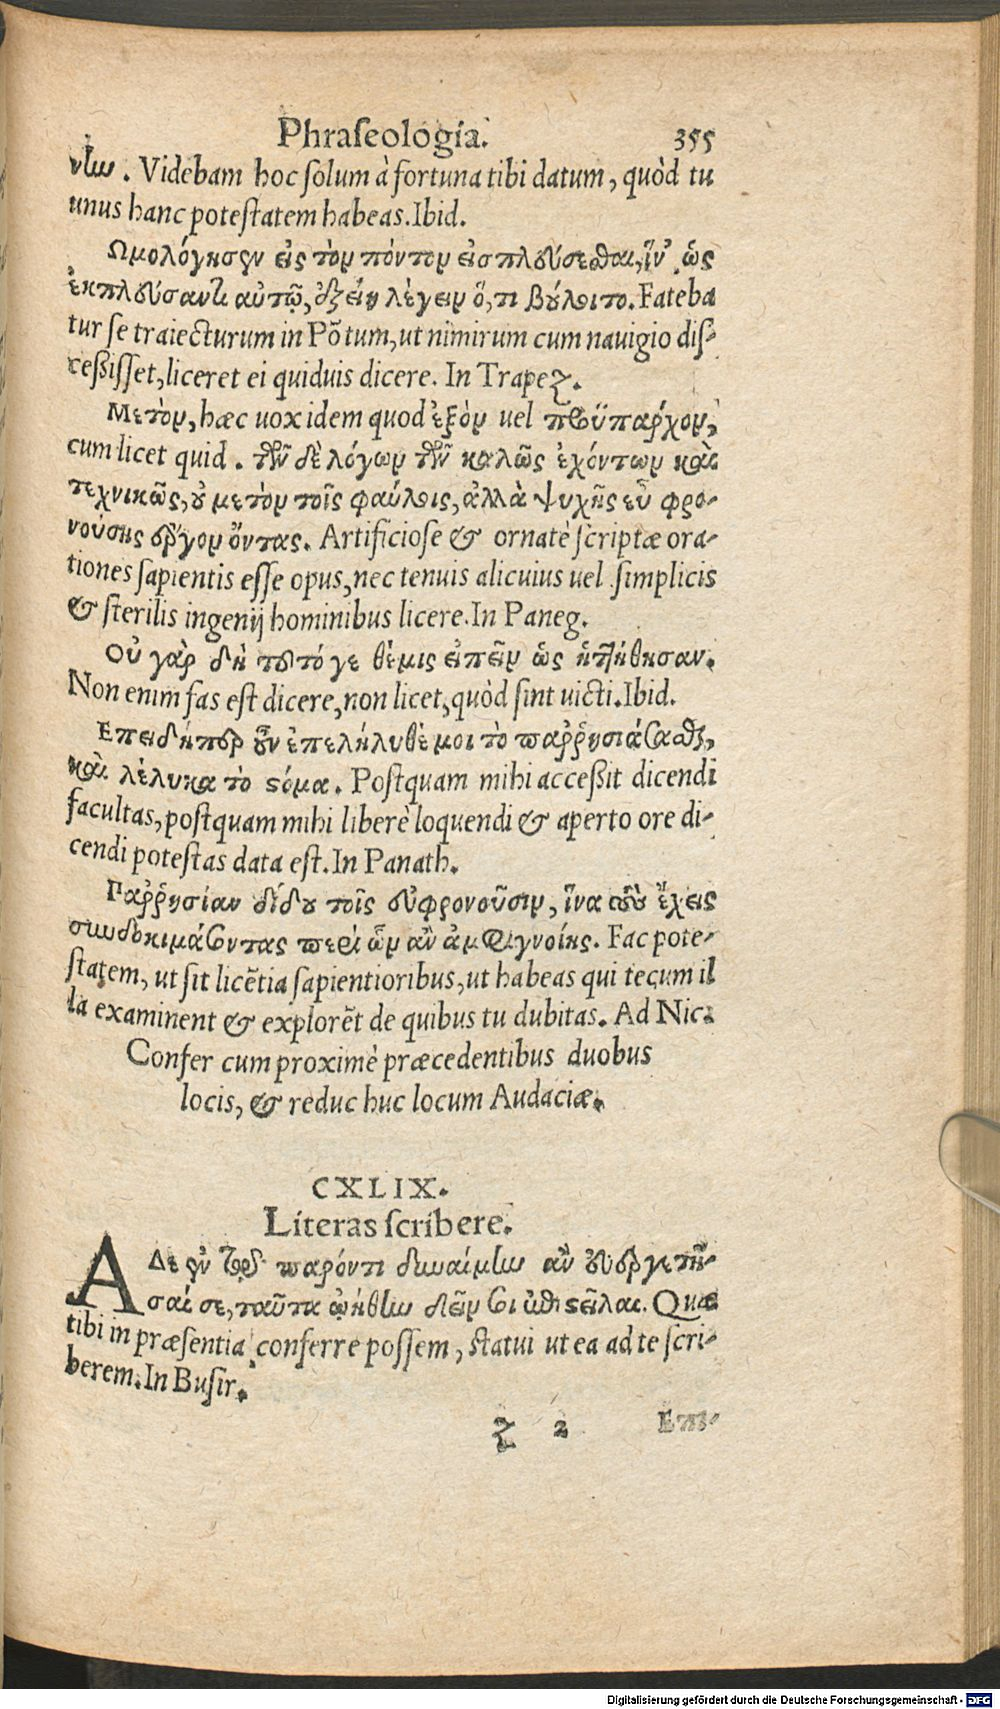 Phraseologia. 355
νίω. Videbam hoc solum à fortuna tibi datum, quòd tu
unus hanc potestatem habeas. Ibid.
Ωμολόγησεν εἰς τὸν πόντον εἰσπλούσεσθαι, ἵν' ὡς
ἐκπλούσαντι αὐτῷ, ἐξείη λέγειν ὅ, τι βούλοιτο. Fateba
tur se traiecturum in Põtum, ut nimirum cum nauigio dis-
ceßisset, liceret ei quiduis dicere. In Trapez.
Μετὸν, hæc uox idem quod ἐξὸν uel προϋπαρχον,
cum licet quid. τῶν δὲ λόγων τῶν καλῶς ἐχόντων καὶ
τεχνικῶς, οὐ μετὸν τοῖς φαύλοις, ἀλλὰ ψυχῆς εὖ φρο-
νούσης ἔργον ὄντας. Artificiose & ornatè scriptæ ora-
tiones sapientis esse opus, nec tenuis alicuius uel simplicis
& sterilis ingenij hominibus licere. In Paneg.
Οὐ γὰρ δὴ τοῦτό γε θέμις εἰπεῖν ὡς ἡττήθησαν.
Non enim fas est dicere, non licet, quòd sint uicti. Ibid.
Επειδήπερ οὖν ἐπελήλυθέ μοι τὸ παῤῥησιάσασθαι,
καὶ λέλυκα τὸ στόμα. Postquam mihi acceßit dicendi
facultas, postquam mihi liberè loquendi & aperto ore di-
cendi potestas data est. In Panath.
Παῤῥησίαν δίδου τοῖς εὐφρονοῦσιν, ἵνα περὶ ἔχεις
συνδοκιμάσοντας περὶ ὧν ἂν ἀμφιγνοίης. Fac pote-
statem, ut sit licẽtia sapientioribus, ut habeas qui tecum il
la examinent & explorẽt de quibus tu dubitas. Ad Nic.
Confer cum proximè præcedentibus duobus
locis, & reduc huc locum Audaciæ.
CXLIX.
Literas scribere.
Α Δε ἐν τῷ παρόντι δυναίμην ἂν εὐεργετῆ-
σαί σε, ταῦτα ᾠήθην δεῖν σοι ἐπιστεῖλαι. Quæ
tibi in præsentia conferre possem, statui ut ea ad te scri-
berem. In Busir.
Z 2 Επι-
Digitalisierung gefördert durch die Deutsche Forschungsgemeinschaft - DFG